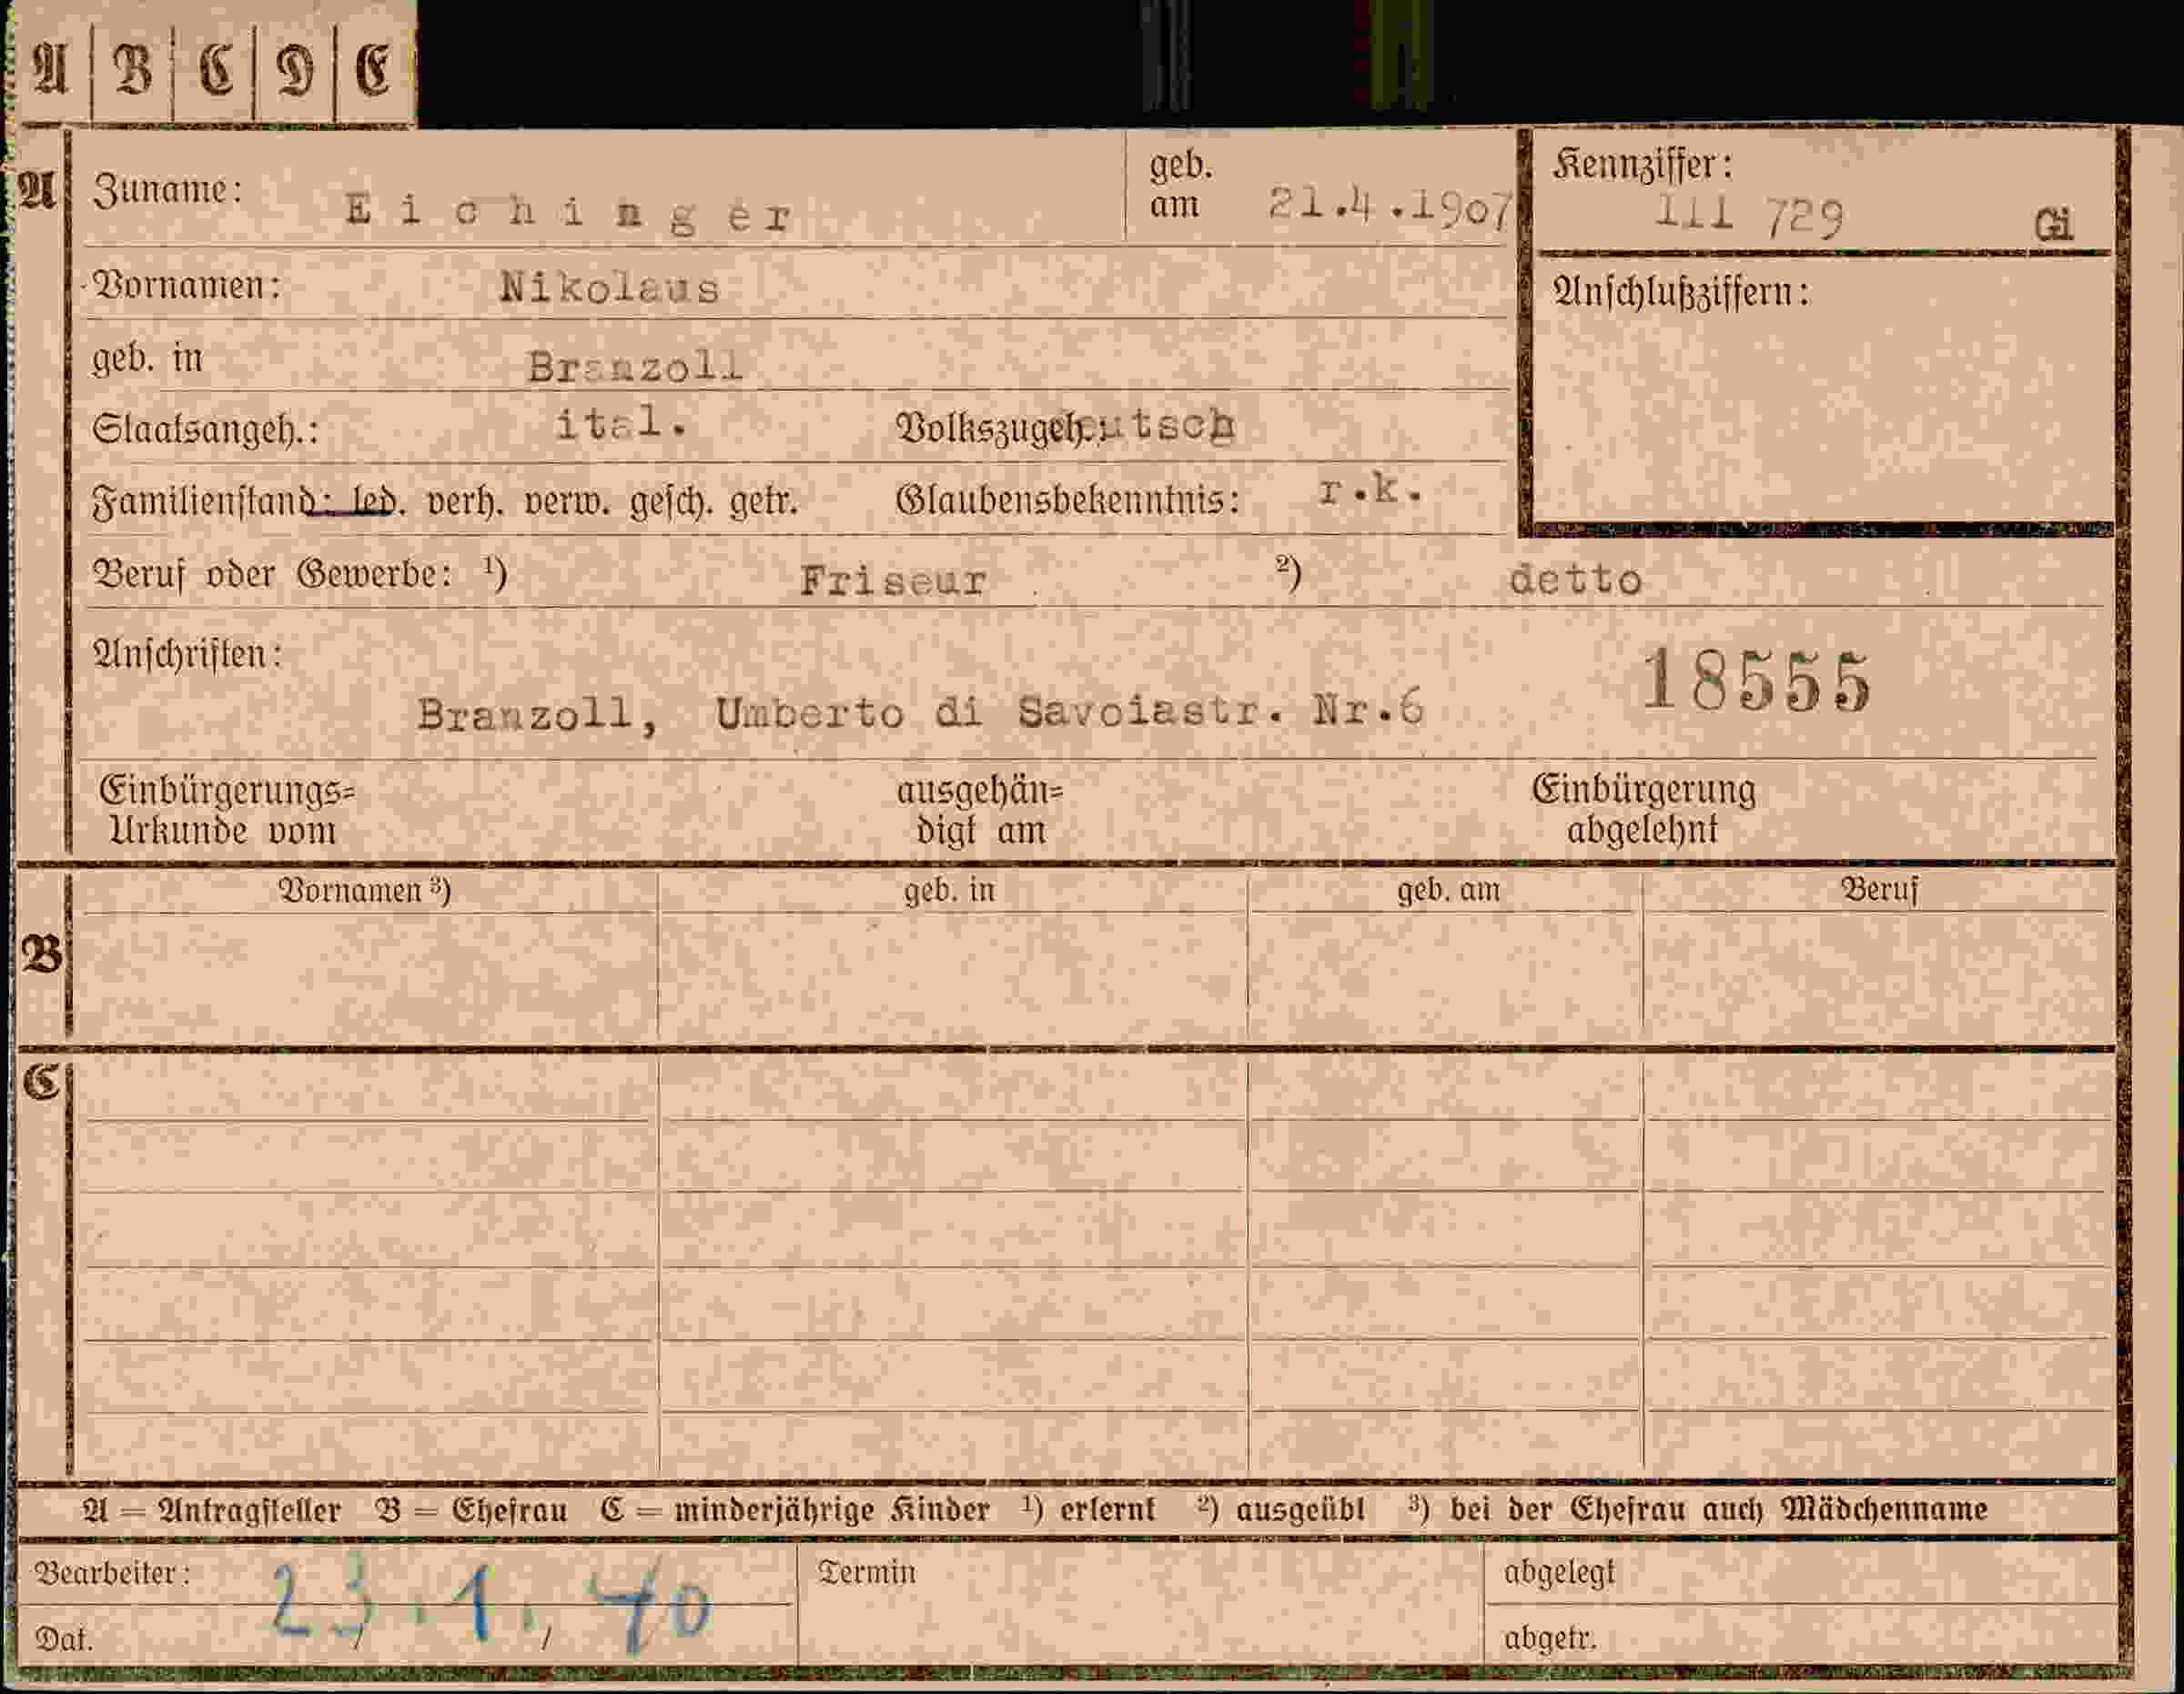 A B C D E
A Zuname: Eichinger geb. am 21.4.1907 Kennziffer: III 729 Gi
Vornamen: Nikolaus Anschlußziffern:
geb. in Branzoll
Staatsangeh.: ital. Volkszugeh. deutsch
Familienstand: led. verh. verw. gesch. getr. Glaubensbekenntnis: r.k.
Beruf oder Gewerbe: ¹) Friseur ²) detto
Anschriften: 18555
Branzoll, Umberto di Savoiastr. Nr.6
Einbürgerungs= ausgehän= Einbürgerung
Urkunde vom digt am abgelehnt
B Vornamen ³) geb. in geb. am Beruf
C
A = Antragsteller B = Ehefrau C = minderjährige Kinder ¹) erlernt ²) ausgeübt ³) bei der Ehefrau auch Mädchenname
Bearbeiter: Termin abgelegt
Dat. 23.1.40 abgetr.